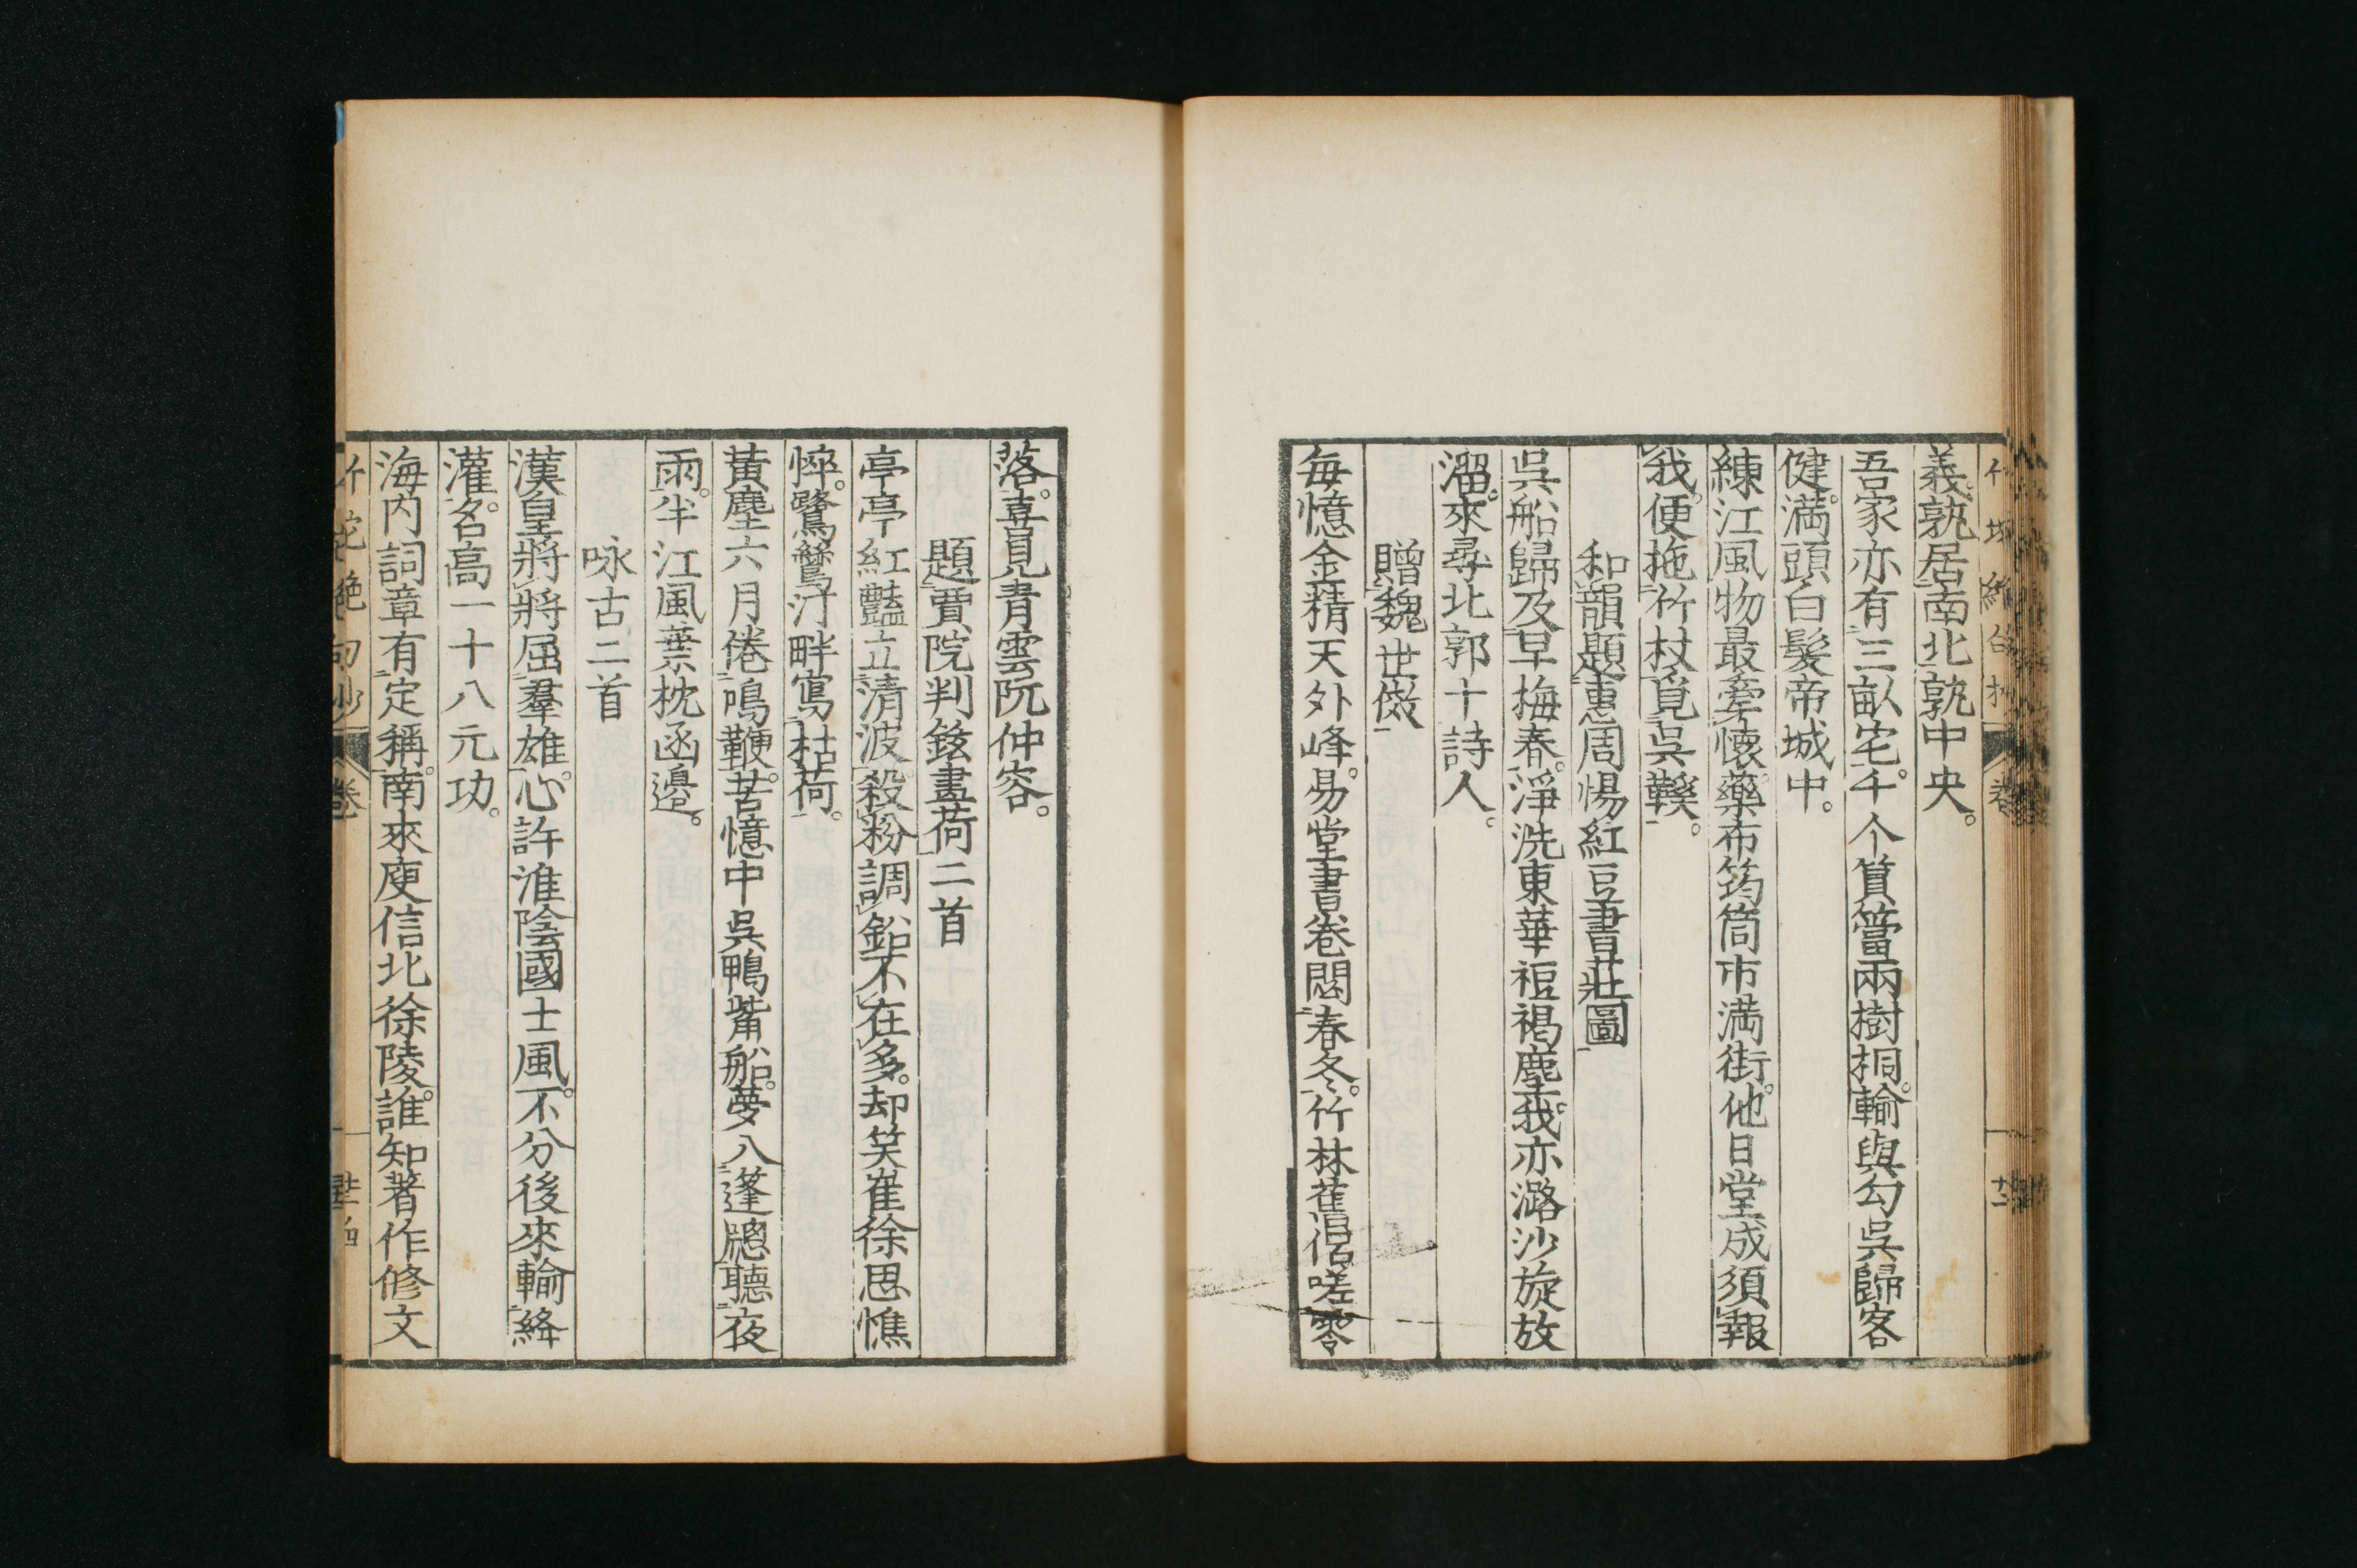 義孰居南北孰中央。
吾家亦有三畝宅。千个篔簹兩樹桐。輸與勾吳歸客
健。満頭白髮帝城中。
練江風物最牽懷。藥布筠筒市満街。他日堂成須報
我。便拖竹杖覓吳鞵。
和韻題惠周惕紅豆書莊圖
吳船歸及早梅春。淨洗東華裋褐塵。我亦潞沙旋放
溜。來尋北郭十詩人。
贈魏世傚
每憶金精天外峰。易堂書卷閟春冬。竹林舊侣嗟零
落。喜見青雲阮仲容。
題賈院判鉉畫荷二首
亭亭紅豔立清波。殺粉調鉛不在多。却笑崔徐思憔
悴。鷺鷥汀畔寫枯荷。
黃塵六月倦鳴鞭。苦憶中吳鴨觜船。夢入篷牕聽夜
雨。半江風葉枕函邊。
咏古二首
漢皇將將屈羣雄。心許淮陰國士風。不分後來輸絳
灌。名高一十八元功。
海内詞章有定稱。南來庾信北徐陵。誰知著作修文
竹垞絶句抄
卷